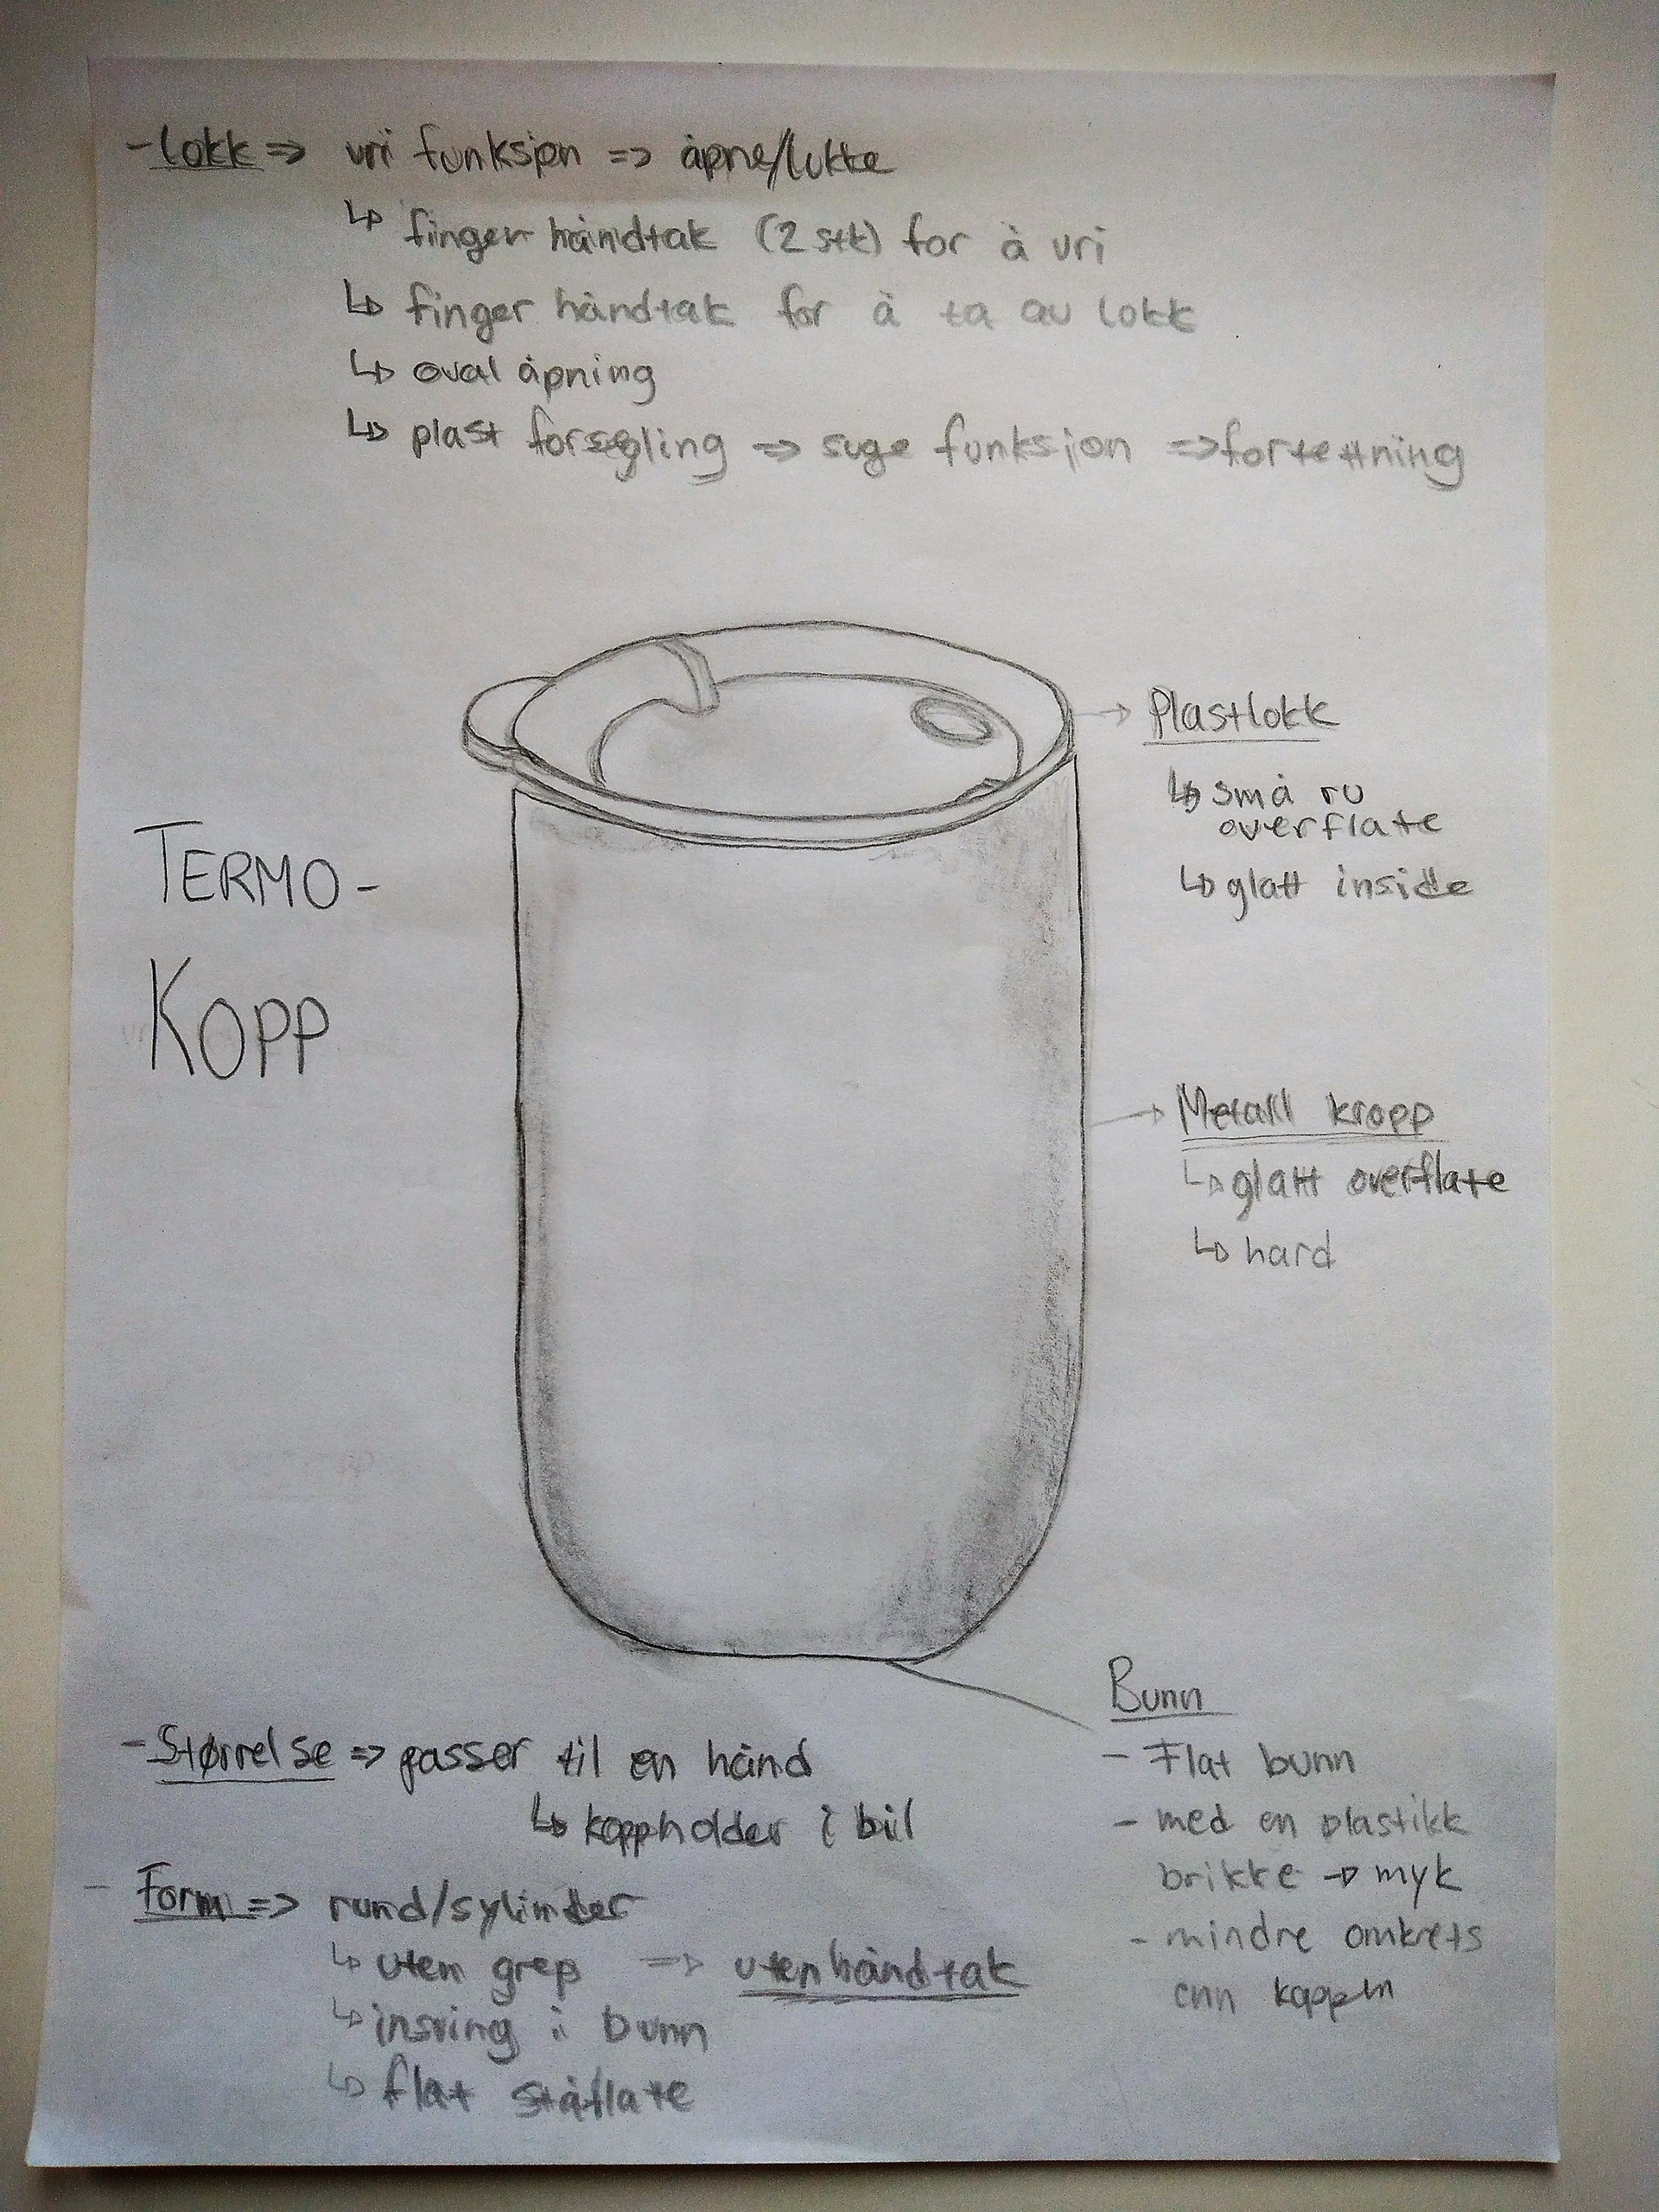 - lokk => vri funksjon => åpne/lukke
↳ finger håndtak (2 stk) for å vri
↳ finger håndtak for å ta av lokk
↳ oval åpning
↳ plast forsegling => suge funksjon => fortettning
→ Plastlokk
↳ små ru
overflate
↳ glatt inside
TERMO-
KOPP
→ Metall kropp
↳ glatt overflate
↳ hard
Bunn
- Flat bunn
- med en plastikk
brikke → myk
- mindre omkrets
enn koppen
- Størrelse => passer til en hånd
↳ koppholder i bil
- Form => rund/sylinder
↳ uten grep => uten håndtak
↳ insving i bunn
↳ flat ståflate